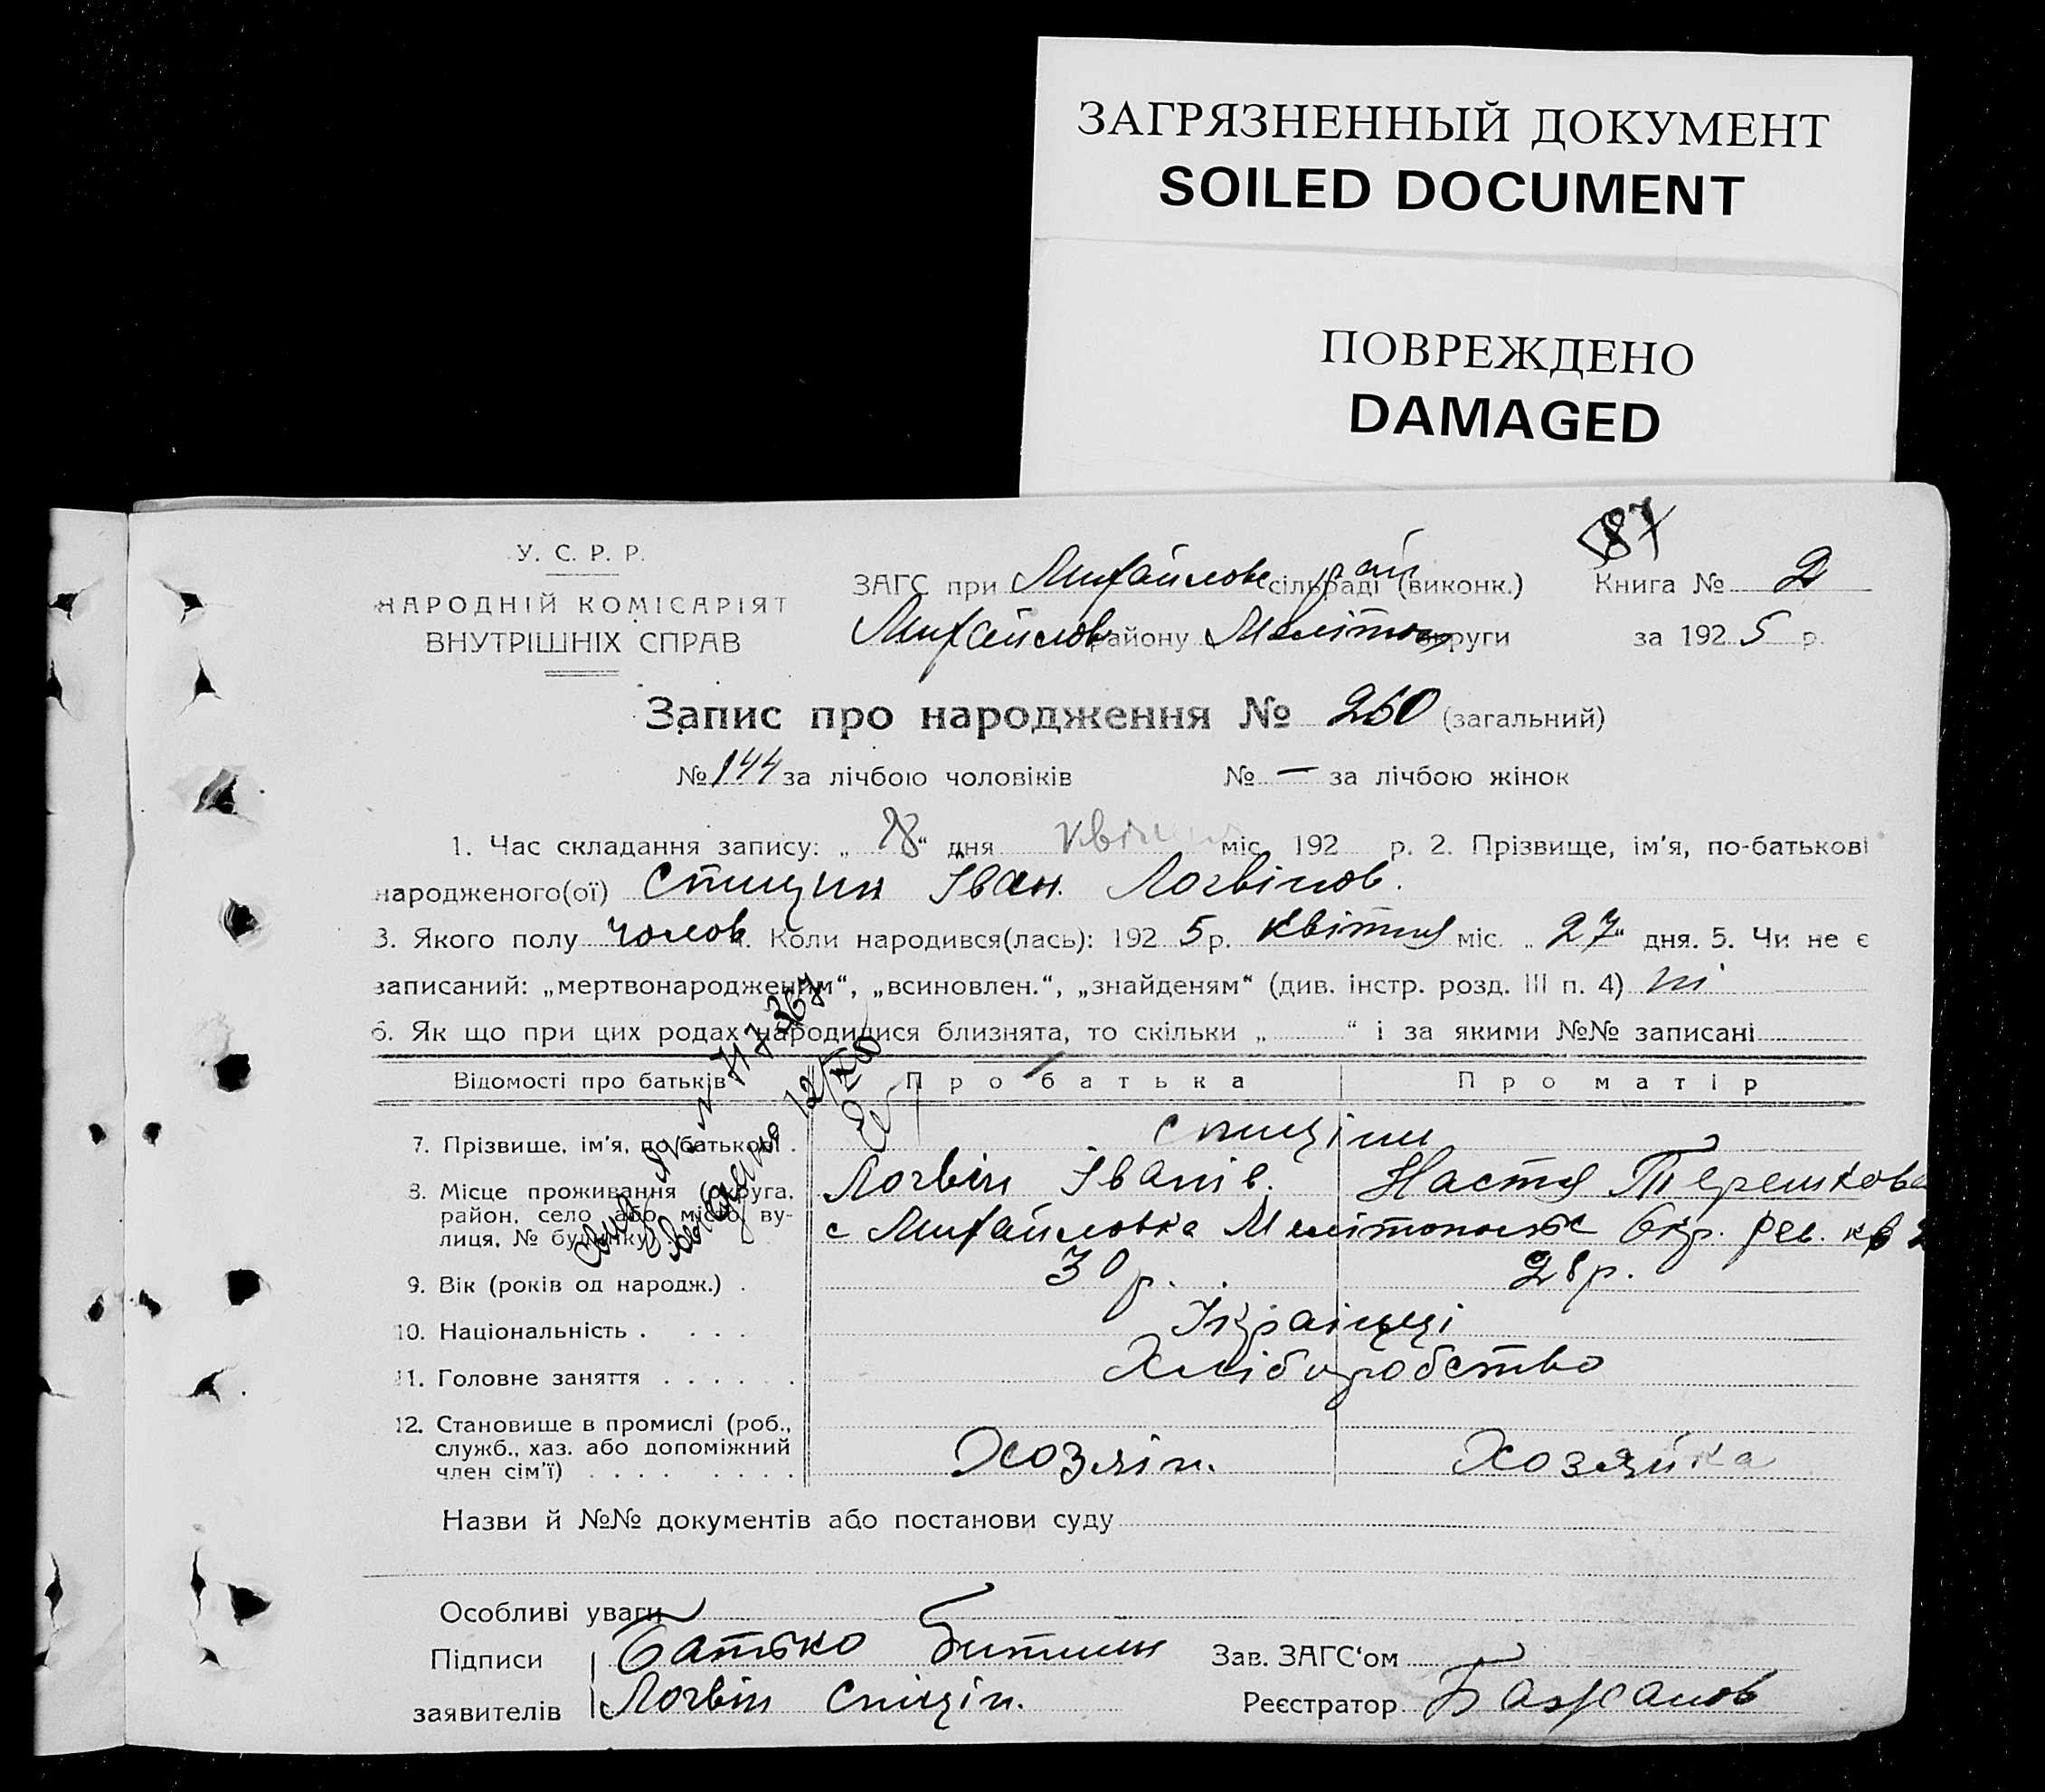 ЗАГРЯЗНЕННЫЙ ДОКУМЕНТ
SOILED DOCUMENT
ПОВРЕЖДЕНО
DAMAGED
87
У. С. Р. Р.
НАРОДНІЙ КОМІСАРІЯТ
ВНУТРІШНІХ СПРАВ
ЗАГС при Михайловс сільраді рай (виконк.) Книга № 2
Михайлов району Мелітоп округи за 1925 р.
Запис про народження № 260 (загальний)
№ 144 за лічбою чоловіків № — за лічбою жінок
1. Час складання запису: „ 28 “ дня квітня міс. 192 р. 2. Прізвище, ім'я, по-батькові
народженого(ої) Спицин Іван Логвінов.
3. Якого полу чолов. Коли народився(лась): 192 5 р. квітня міс. „ 27 “ дня. 5. Чи не є
записаний: „мертвонародженим“, „всиновлен.“, „знайденям“ (див. інстр. розд. III п. 4) ні
6. Як що при цих родах народилися близнята, то скільки „ “ і за якими №№ записані
Відомості про батьків Про батька Про матір
7. Прізвище, ім'я, по-батькові . Спиціни
Логвін Іванів. Настя Терешкова
8. Місце проживання (округа, район, село або місто, ву-
лиця, № будинку) с Михайловка Мелітопольск Окр. рев. кв 2
9. Вік (років од народж.) . 30 р. 28 р.
10. Національність . . . . Українці
11. Головне заняття . . . . . . Хліборобство
12. Становище в промислі (роб.,
служб., хаз. або допоміжний
член сім'ї) . . . . . . . . . Хозяін. Хозяйка
Назви й №№ документів або постанови суду
Особливі уваги
Підписи Батько Зав. ЗАГС'ом
заявителів Логвін Спіцін. Реєстратор Бажанов